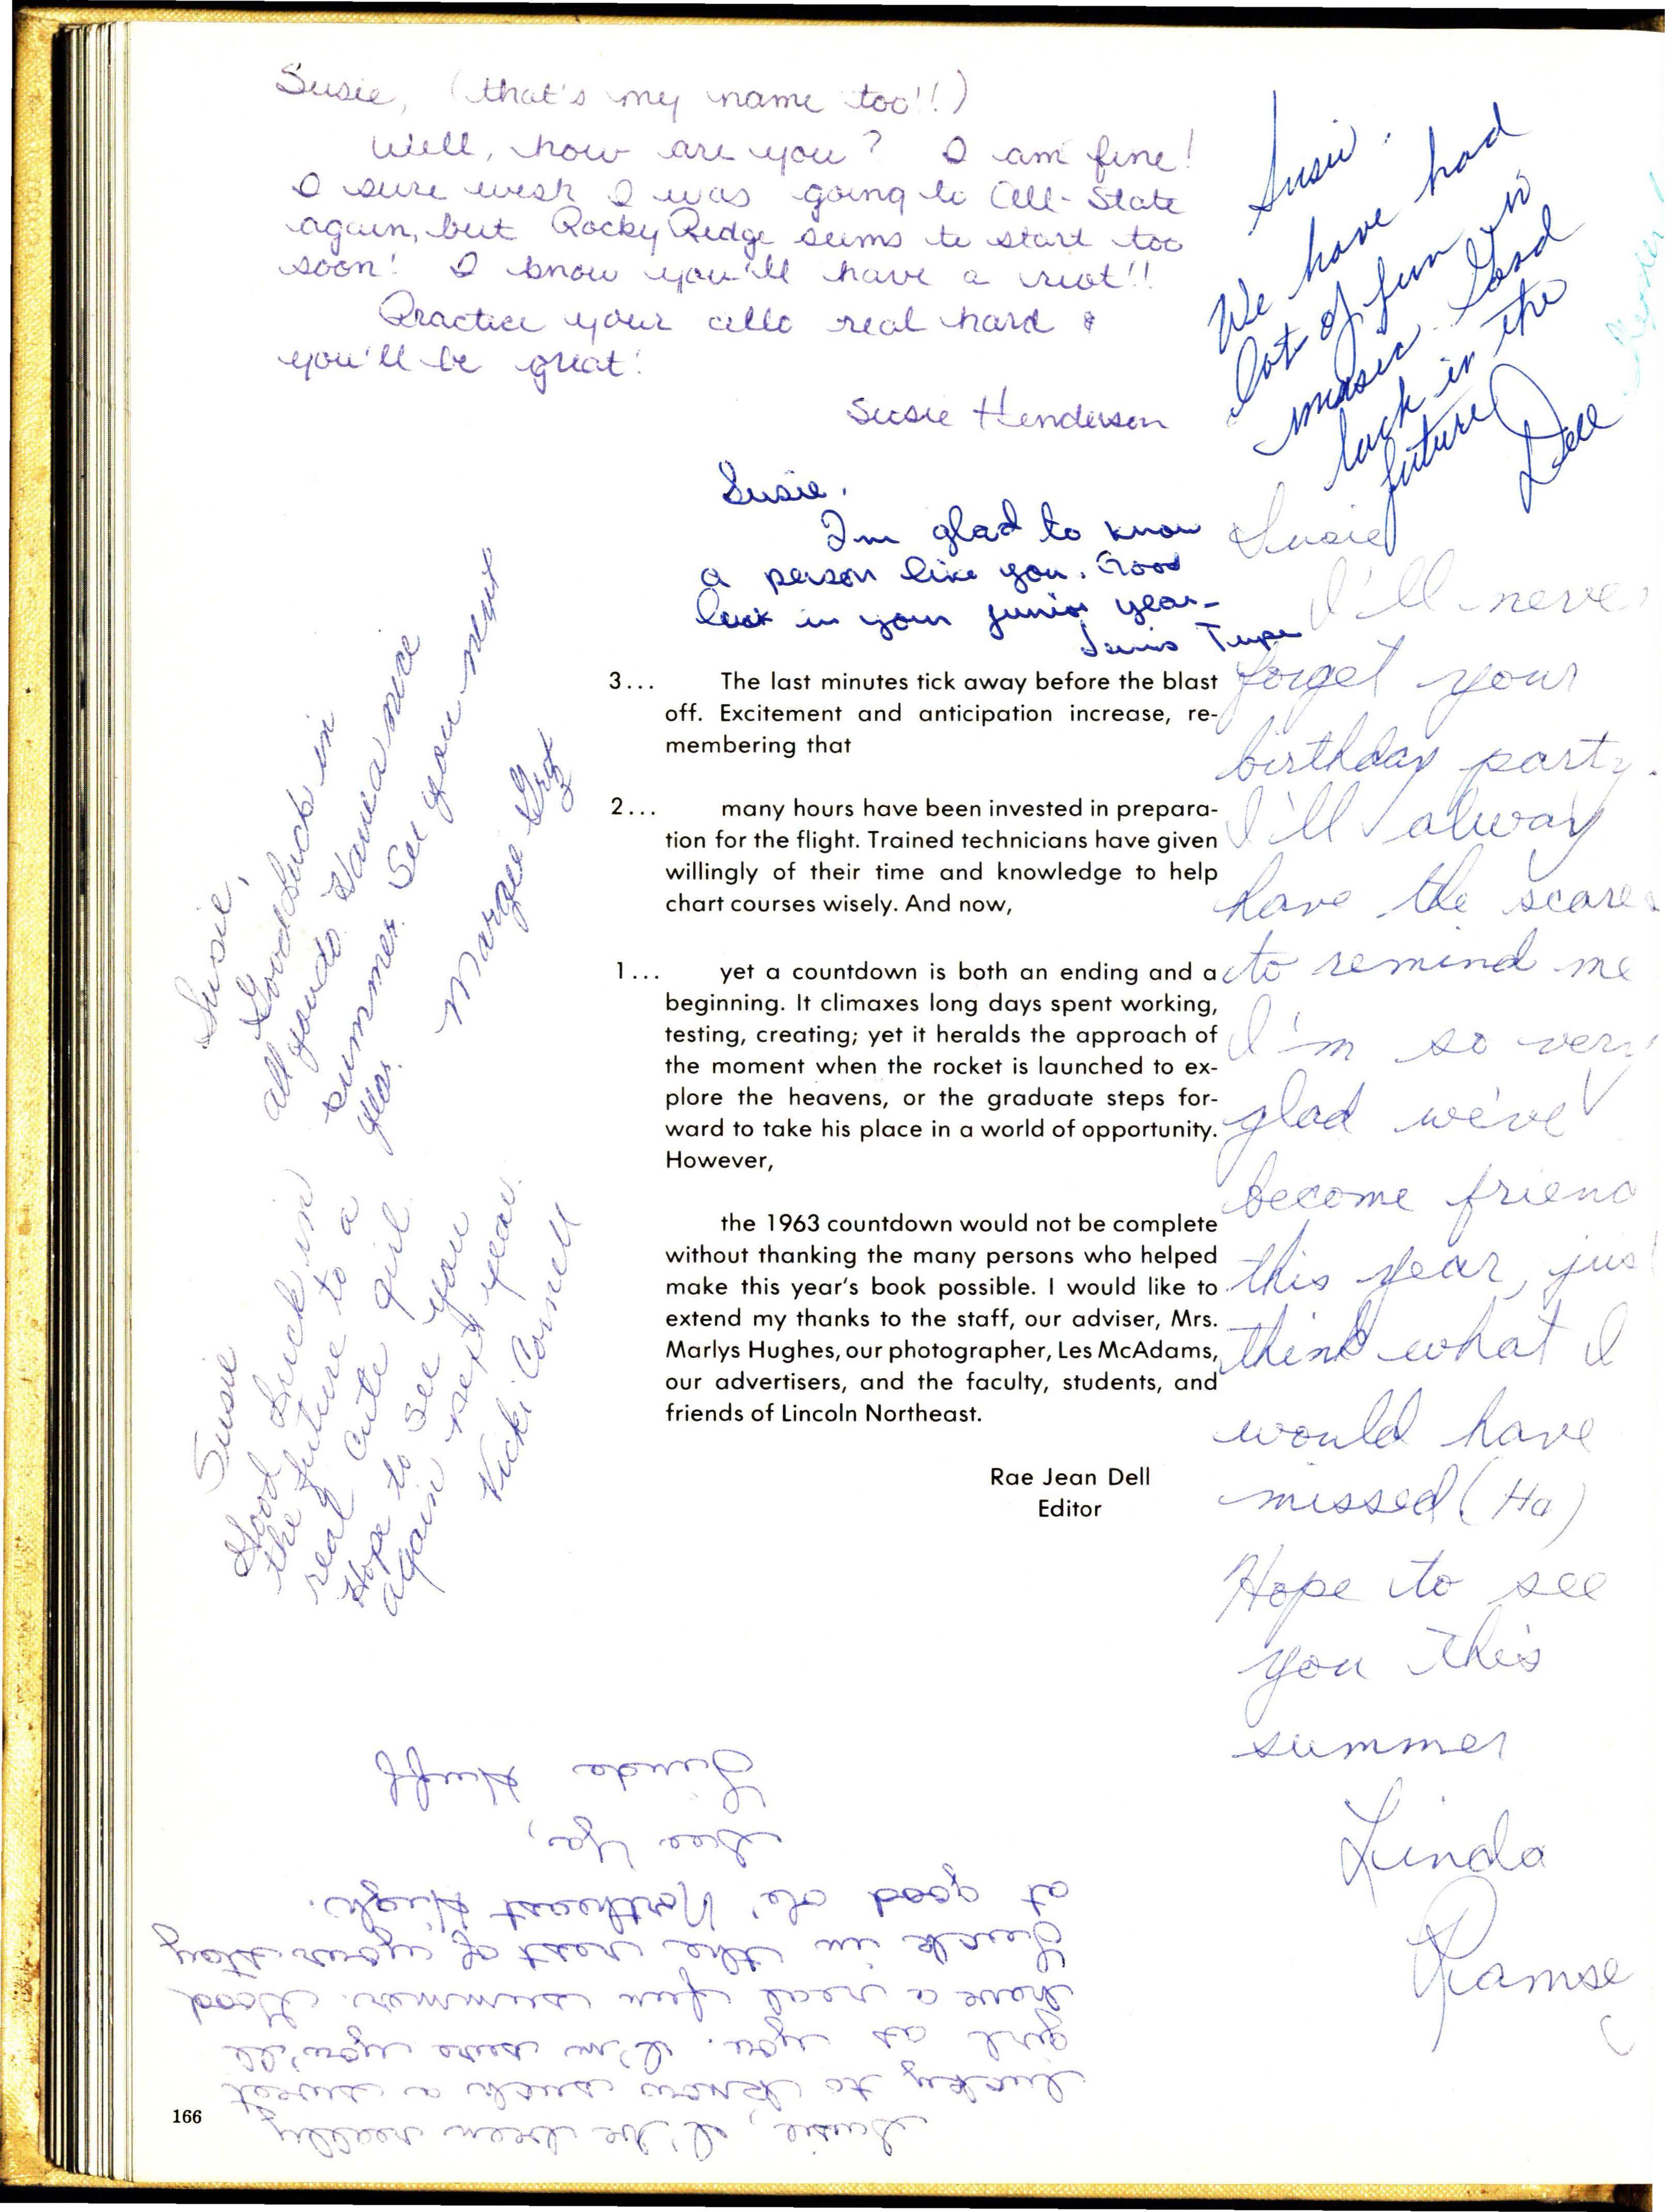 Susie, (that's my name too!!)
Well, how are you? I am fine!
I sure wish I was going to All-State
again, but Rocky Ridge seems to start too
soon! I know you'll have a riot!!
Practice your cello real hard &
you'll be great!
Susie Henderson
Susie:
We have had
lots of fun in
music. Good
luck in the
future
Dell
Susie,
I'm glad to know
a person like you. Good
luck in your junior year—
Susie,
Good luck in
all you do. Have a nice
summer. See you next
year.
Margee
Susie
Good Luck in
the future to a
real cute girl
Hope to see you
again next year.
Vicki Cornell
3... The last minutes tick away before the blast
off. Excitement and anticipation increase, re-
membering that
2... many hours have been invested in prepara-
tion for the flight. Trained technicians have given
willingly of their time and knowledge to help
chart courses wisely. And now,
1... yet a countdown is both an ending and a
beginning. It climaxes long days spent working,
testing, creating; yet it heralds the approach of
the moment when the rocket is launched to ex-
plore the heavens, or the graduate steps for-
ward to take his place in a world of opportunity.
However,
the 1963 countdown would not be complete
without thanking the many persons who helped
make this year's book possible. I would like to
extend my thanks to the staff, our adviser, Mrs.
Marlys Hughes, our photographer, Les McAdams,
our advertisers, and the faculty, students, and
friends of Lincoln Northeast.
Rae Jean Dell
Editor
Susie
I'll never
forget your
birthday party.
I'll alway
have the scares
to remind me
I'm so very
glad we've
become friend
this year, jus
think what I
would have
missed (Ha)
Hope to see
you this
summer
Linda
Ramse
Susie, I've been really
lucky to know such a sweet
girl as you. I'm sure you'll
have a real fun summer. Good
Luck in the rest of your stay
at good ole' Northeast High.
See Ya,
Linda Huff
166